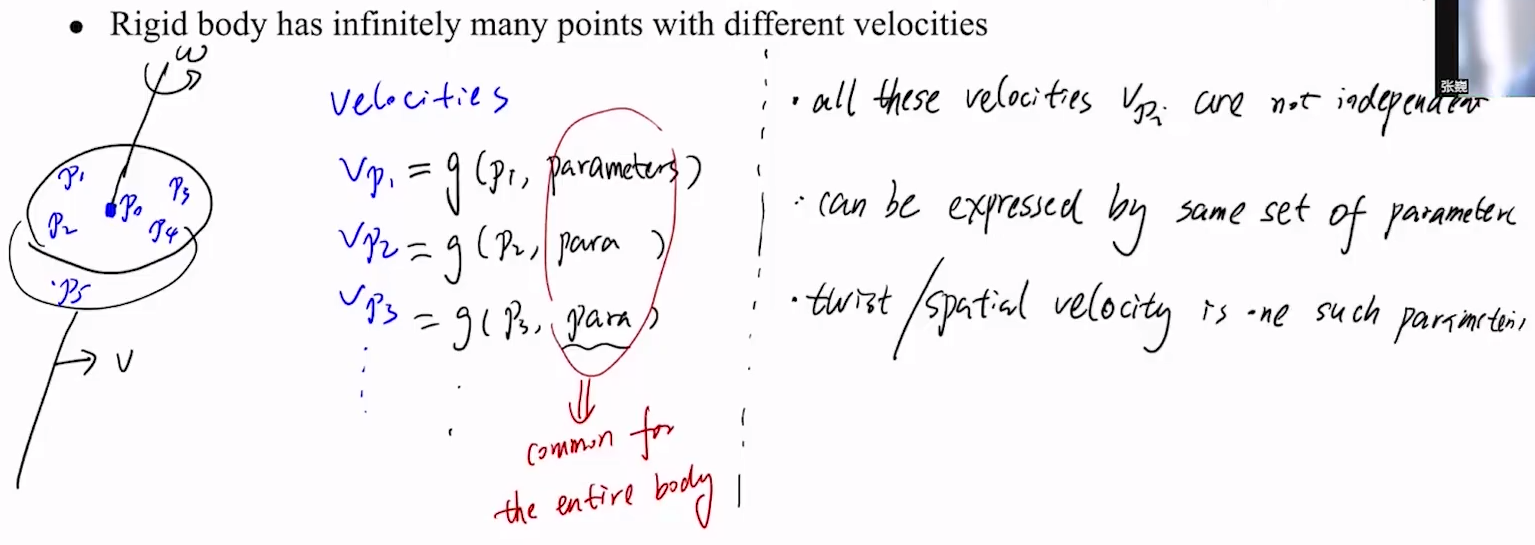 • Rigid body has infinitely many points with different velocities
ω
P1
P3
P0
P2
P4
·P5
V
velocities
VP1 = g (P1, parameters)
VP2 = g (P2, para )
VP3 = g ( P3, para )
common for
the entire body
· all these velocities VPi are not independent
· can be expressed by same set of parameters
· twist / spatial velocity is one such parameters
张巍